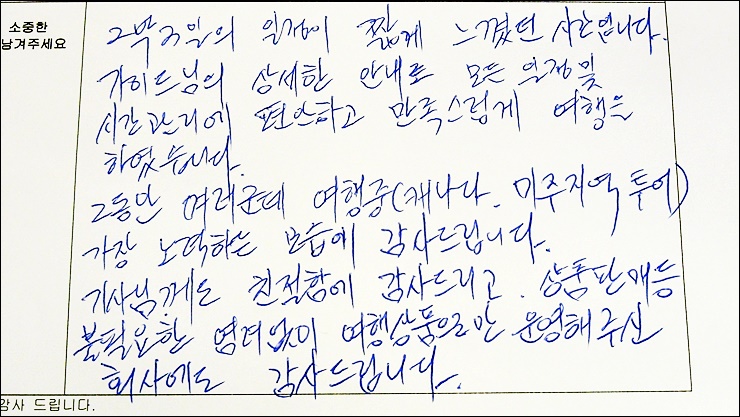 소중한
남겨주세요
2박3일의 일정이 짧게 느꼈던 시간입니다.
가이드님의 상세한 안내로 모든 일정및
시간관리에 편안하고 만족스럽게 여행을
하였습니다.
그동안 여러군데 여행중(캐나다. 미주지역 투어)
가장 노력하는 모습에 감사드립니다.
기사님께도 친절함에 감사드리고. 상품판매등
불필요한 염려없이 여행상품으로만 운영해주신
회사에도 감사드립니다.
감사 드립니다.